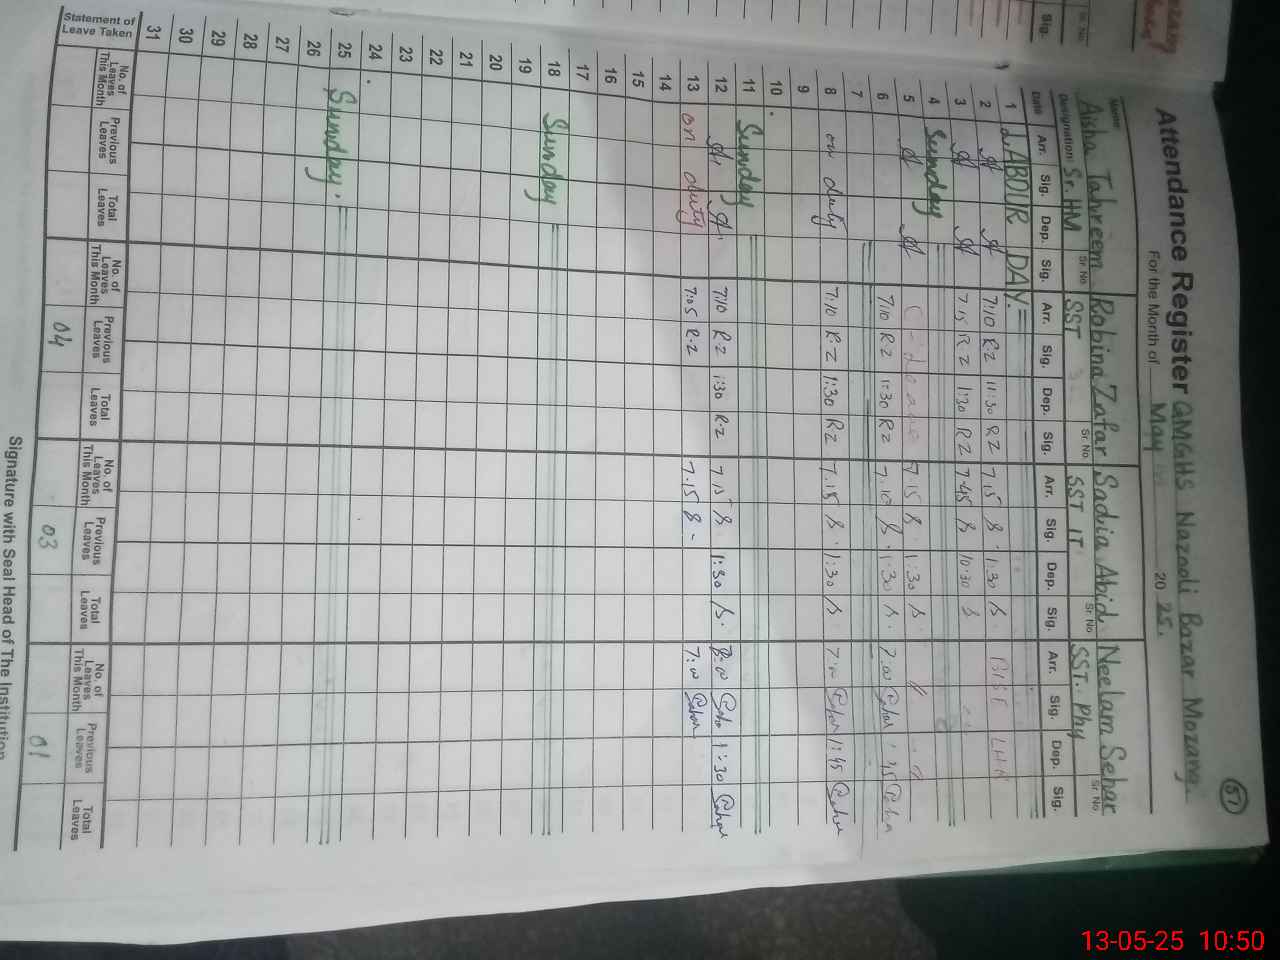 57
Attendance Register GMGHS Nazooli Bazar Mozang.
For the Month of May 20 25.
Name: Aisha Tahreem Robina Zafar Sadia Abid Neelam Sehar
Designation: Sr. HM Sr. No SST Sr. No SST IT Sr. No SST. Phy Sr. No
Date Arr. Sig. Dep. Sig. Arr. Sig. Dep. Sig. Arr. Sig. Dep. Sig. Arr. Sig. Dep. Sig.
1 LABOUR DAY.
2 7:10 R.Z 11:30 RZ 7.15 1:30
3 7:15 RZ 1:30 RZ 7.45 10:30
4 Sunday
5 C-Leave 7.15 1:30
6 7:10 RZ 1:30 RZ 7.10 1:30 7:00 Sehar
7
8 on duty 7:10 R.Z 1:30 RZ 7.15 1:30 7:00 Sehar 1:45 Sehar
9
10
11 Sunday
12 7:10 R.Z 1:30 R.Z 7.15 1:30 Sehar 1:30 Sehar
13 on duty 7:05 R.Z 7.15 7:00 Sehar
14
15
16
17
18 Sunday
19
20
21
22
23
24
25 Sunday.
26
27
28
29
30
31
Statement of Leave Taken
No. of Leaves This Month Previous Leaves Total Leaves No. of Leaves This Month Previous Leaves Total Leaves No. of Leaves This Month Previous Leaves Total Leaves No. of Leaves This Month Previous Leaves Total Leaves
04 03 01
Signature with Seal Head of The Institution
Sr. No
Sig.
13-05-25 10:50